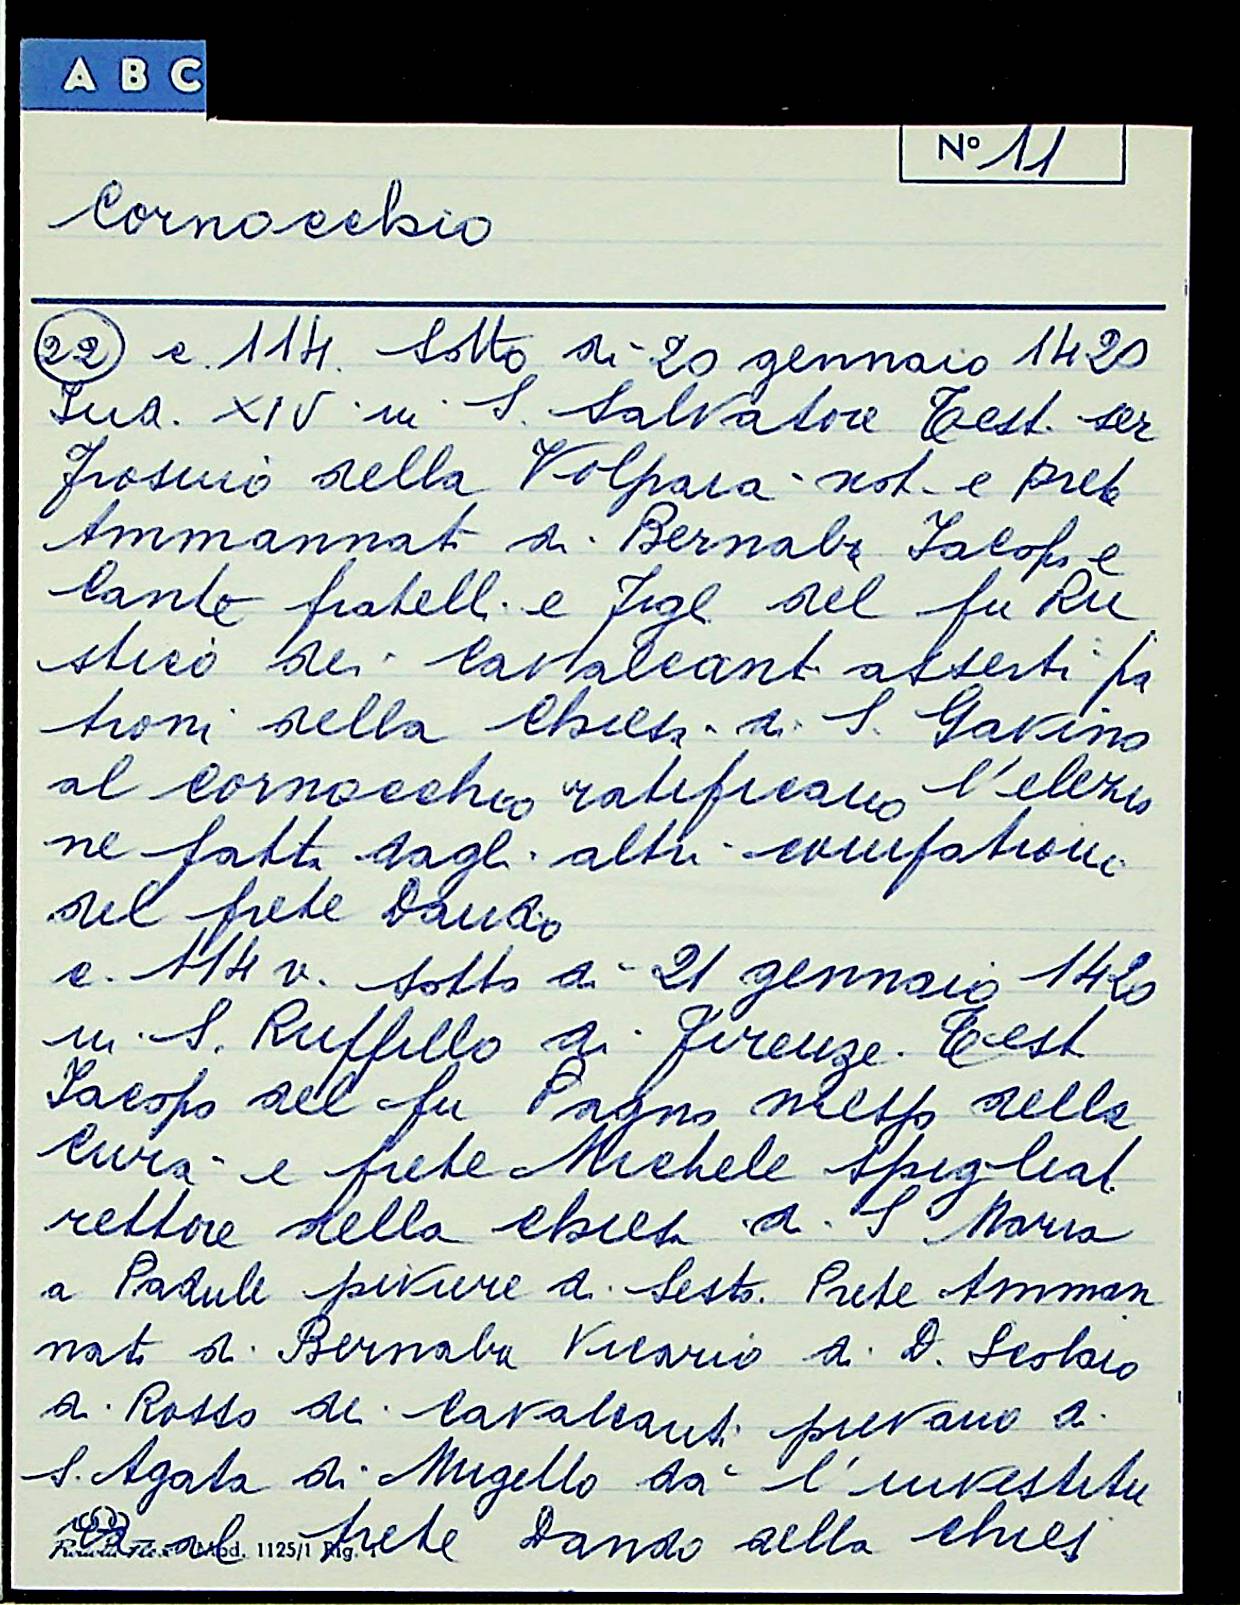 A B C
Nº 11
Cornocchio
22 c. 114. Sotto dì 20 gennaio 1420
Ind. XIV in S. Salvatore Test. ser
Frosino della Volpaia not. e prete
Ammannati di Bernaba Iacopo e
Cante fratelli e Figl del fu Ru
stico dei Cavalcanti asserti pa
troni della Chiesa di S. Gavino
al Cornocchio ratificano l'elezio
ne fatta dagli altri compatroni
del prete Dando
c. 114 v. sotto dì 21 gennaio 1420
in S. Ruffillo di Firenze. Test
Iacopo del fu Pagno messo della
Curia e prete Michele Spigliat.
rettore della chiesa di S Maria
a Padule piviere di Sesto. Prete Amman
nati di Bernaba Vicario di D. Scolaio
di Rosso dei Cavalcanti pievano di
S. Agata di Mugello dà l'investitu
ra al prete Dando della chies
Mod. 1125/1 Rig.